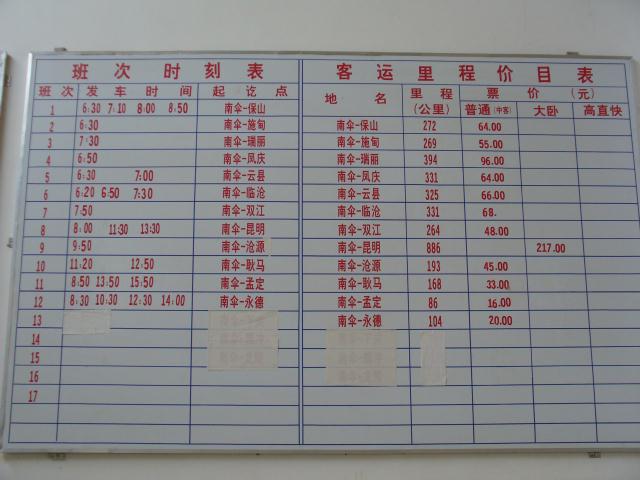 班次时刻表
班次 发车时间 起讫点
1 6:30 7:10 8:00 8:50 南伞-保山
2 6:30 南伞-施甸
3 7:30 南伞-瑞丽
4 6:50 南伞-凤庆
5 6:30 7:00 南伞-云县
6 6:20 6:50 7:30 南伞-临沧
7 7:50 南伞-双江
8 8:00 11:30 13:30 南伞-昆明
9 9:50 南伞-沧源
10 11:20 12:50 南伞-耿马
11 8:50 13:50 15:50 南伞-孟定
12 8:30 10:30 12:30 14:00 南伞-永德
13
14
15
16
17
客运里程价目表
地名 里程(公里) 票价(元)
普通(中客) 大卧 高直快
南伞-保山 272 64.00
南伞-施甸 269 55.00
南伞-瑞丽 394 96.00
南伞-凤庆 331 64.00
南伞-云县 325 66.00
南伞-临沧 331 68.
南伞-双江 264 48.00
南伞-昆明 886 217.00
南伞-沧源 193 45.00
南伞-耿马 168 33.00
南伞-孟定 86 16.00
南伞-永德 104 20.00